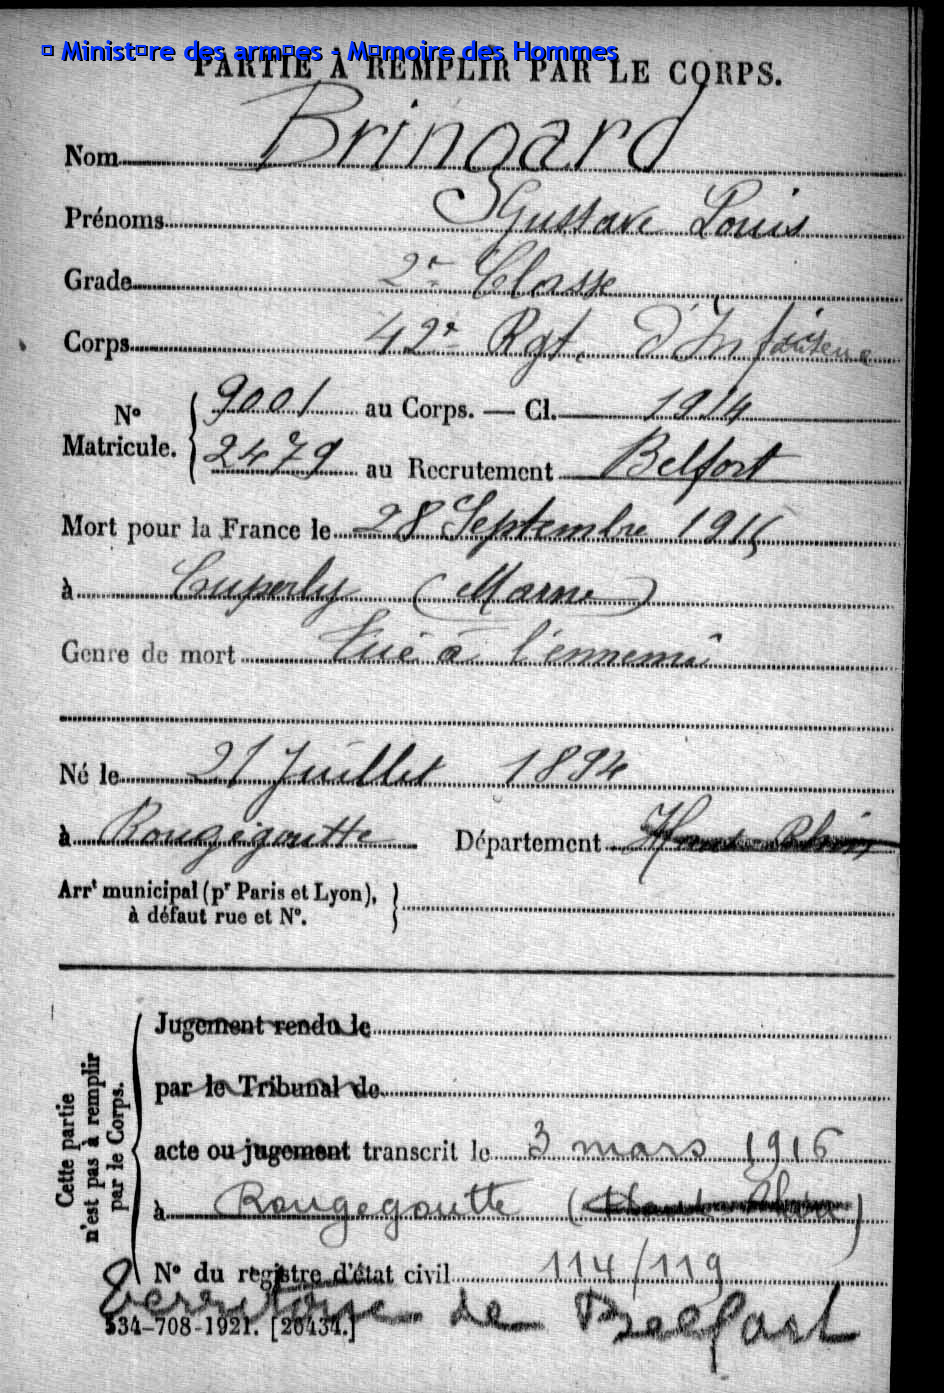 © Ministère des armées - Mémoire des Hommes
PARTIE À REMPLIR PAR LE CORPS.
Nom Bringard
Prénoms Gustave Louis
Grade 2e Classe
Corps 42e Rgt. d'Infanterie
N° Matricule. { 9001 au Corps. — Cl. 1914
2479 au Recrutement Belfort
Mort pour la France le 28 Septembre 1915
à Cuperly (Marne)
Genre de mort Tué à l'ennemi
Né le 21 Juillet 1894
à Rougegoutte Département Haut Rhin
Arrt municipal (pr Paris et Lyon),
à défaut rue et N°.
Cette partie
n'est pas à remplir
par le Corps.
Jugement rendu le
par le Tribunal de
acte ou jugement transcrit le 3 mars 1916
à Rougegoutte (Haut Rhin)
N° du registre d'état civil 114/119
Territoire de Belfort
534-708-1921. [26434.]